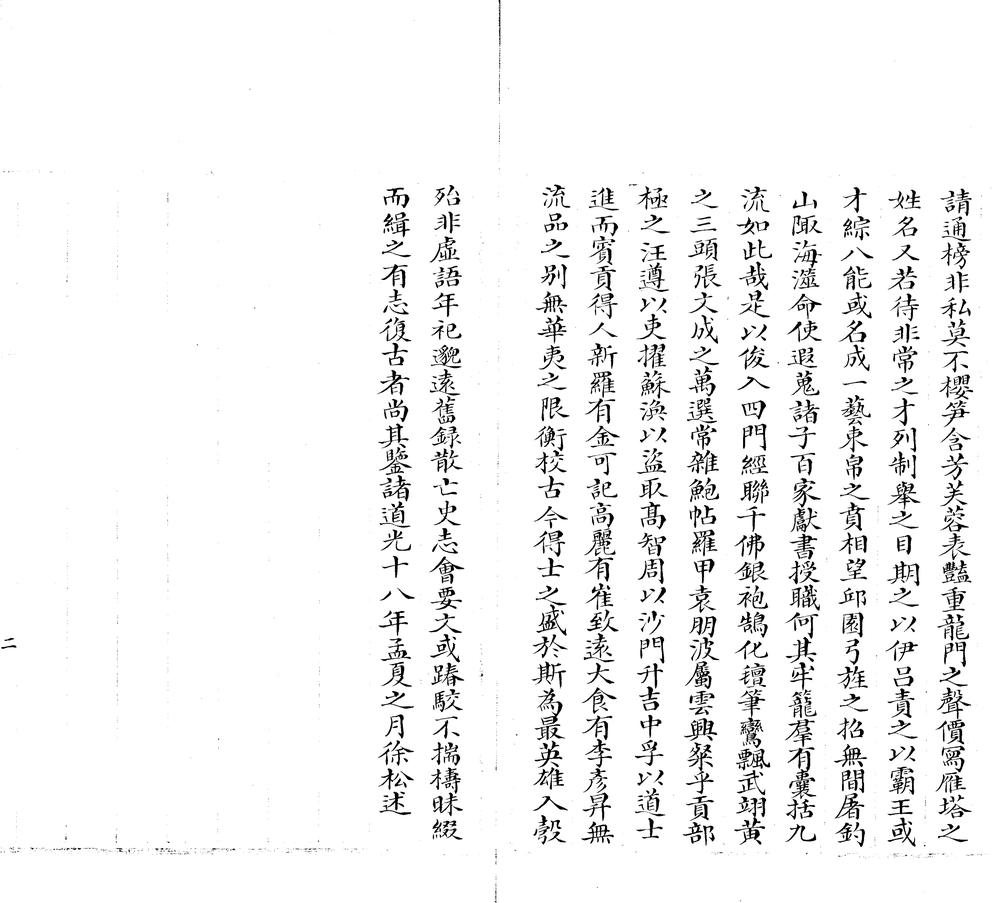 請通榜非私莫不櫻笋含芳芙蓉表豔重龍門之聲價寫雁塔之
姓名又若待非常之才列制舉之目期之以伊吕責之以霸王或
才綜八能或名成一藝束帛之賁相望邱園弓旌之招無間屠釣
山陬海澨命使遐蒐諸子百家獻書授職何其牢籠羣有囊括九
流如此哉是以俊入四門經聯千佛銀袍鵠化鐘筆鸞飄武翊黄
之三頭張文成之萬選常雜鮑帖羅甲袁朋波屬雲興粲乎貢部
極之汪遵以吏擢蘇渙以盜取髙智周以沙門升吉中孚以道士
進而賓貢得人新羅有金可記高麗有崔致遠大食有李彥昇無
流品之别無華夷之限衡校古今得士之盛於斯為最英雄入彀
殆非虛語年祀邈遠舊録散亡史志會要文或踳駮不揣檮昧綴
而緝之有志復古者尚其鑒諸道光十八年孟夏之月徐松述
二